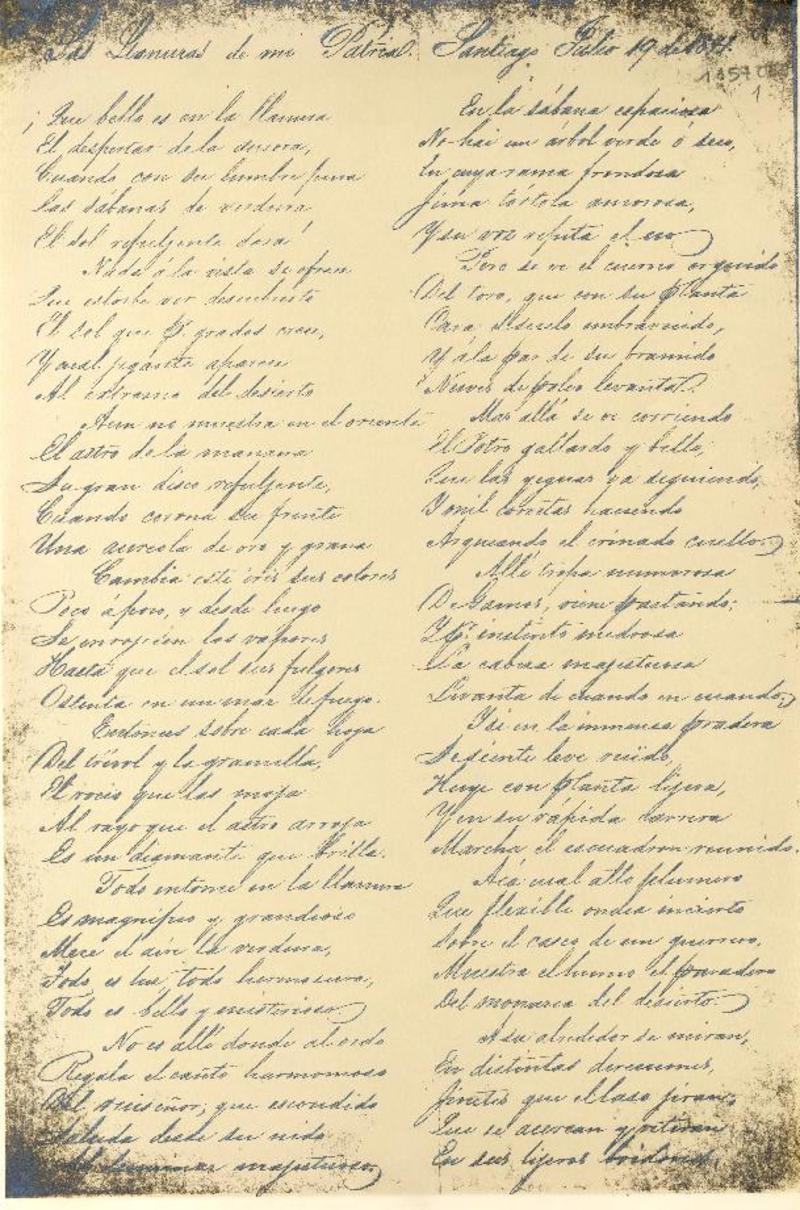 Las Llanuras de mi Patria. Santiago Julio 19 de
11570
1
¡Que bello es en la llanura
El despertar de la aurora,
Cuando con su lumbre pura
Las sábanas de verdura
El sol refulgente dora!
Nada á la vista se ofrece
Que estorbe ver descubierto
El sol que pr. grados crece,
Y cual jigante aparece
Al estremo del desierto
Aun no muestra en el oriente
El astro de la mañana
Su gran disco refuljente,
Cuando corona su frente
Una aureola de oro y grana
Cambia este iris sus colores
Poco á poco, y desde luego
Se enrojecen los vapores
Hasta que el sol sus fulgores
Ostenta en un mar de fuego.
Entonces sobre cada hoja
Del trévol y la gramilla,
El rocio que las moja
Al rayo que el astro arroja
Es un diamante que brilla.
Todo entonce en la llanura
Es magnifico y grandioso
Mece el aire la verdura,
Todo es luz, todo hermosura,
Todo es bello y misterioso.
No es allí donde al oido
Regala el canto harmonioso
Del ruiseñor, que escondido
Saluda desde su nido
Al luminar majestuoso
En la sábana espaciosa
No hai un árbol verde ó seco,
En cuya rama frondosa
Jima tórtola amorosa,
Y su voz repita el eco
Pero se ve el cuerno erguido
Del toro, que con su planta
Cava el suelo embravecido,
Y á la par de su bramido
Nuves de polvo levanta.
Mas allá se ve corriendo
El Potro gallardo y bello,
Que las yeguas va siguiendo,
I mil corvetas haciendo
Arqueando el crinado cuello.
Allí tropa numerosa
De Gamos, viene pastando;
I pr. instinto medrosa
La cabeza majestuosa
Levanta de cuando en cuando,
I si en la inmensa pradera
Se siente leve ruido,
Huye con planta lijera,
Y en su rápida carrera
Marcha el escuadron reunido.
Acá cual alto plumero
Que flexible ondea incierto
Sobre el casco de un guerrero,
Muestra el humo el paradero
Del monarca del desierto.
A su alrededor se miran,
En distintas direcciones,
Jinetes que el laso jiran,
Que se acercan y retiran
En sus lijeros bridones,